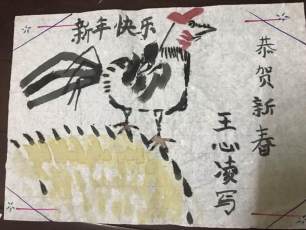 新年快乐
恭贺新春
王心凌写